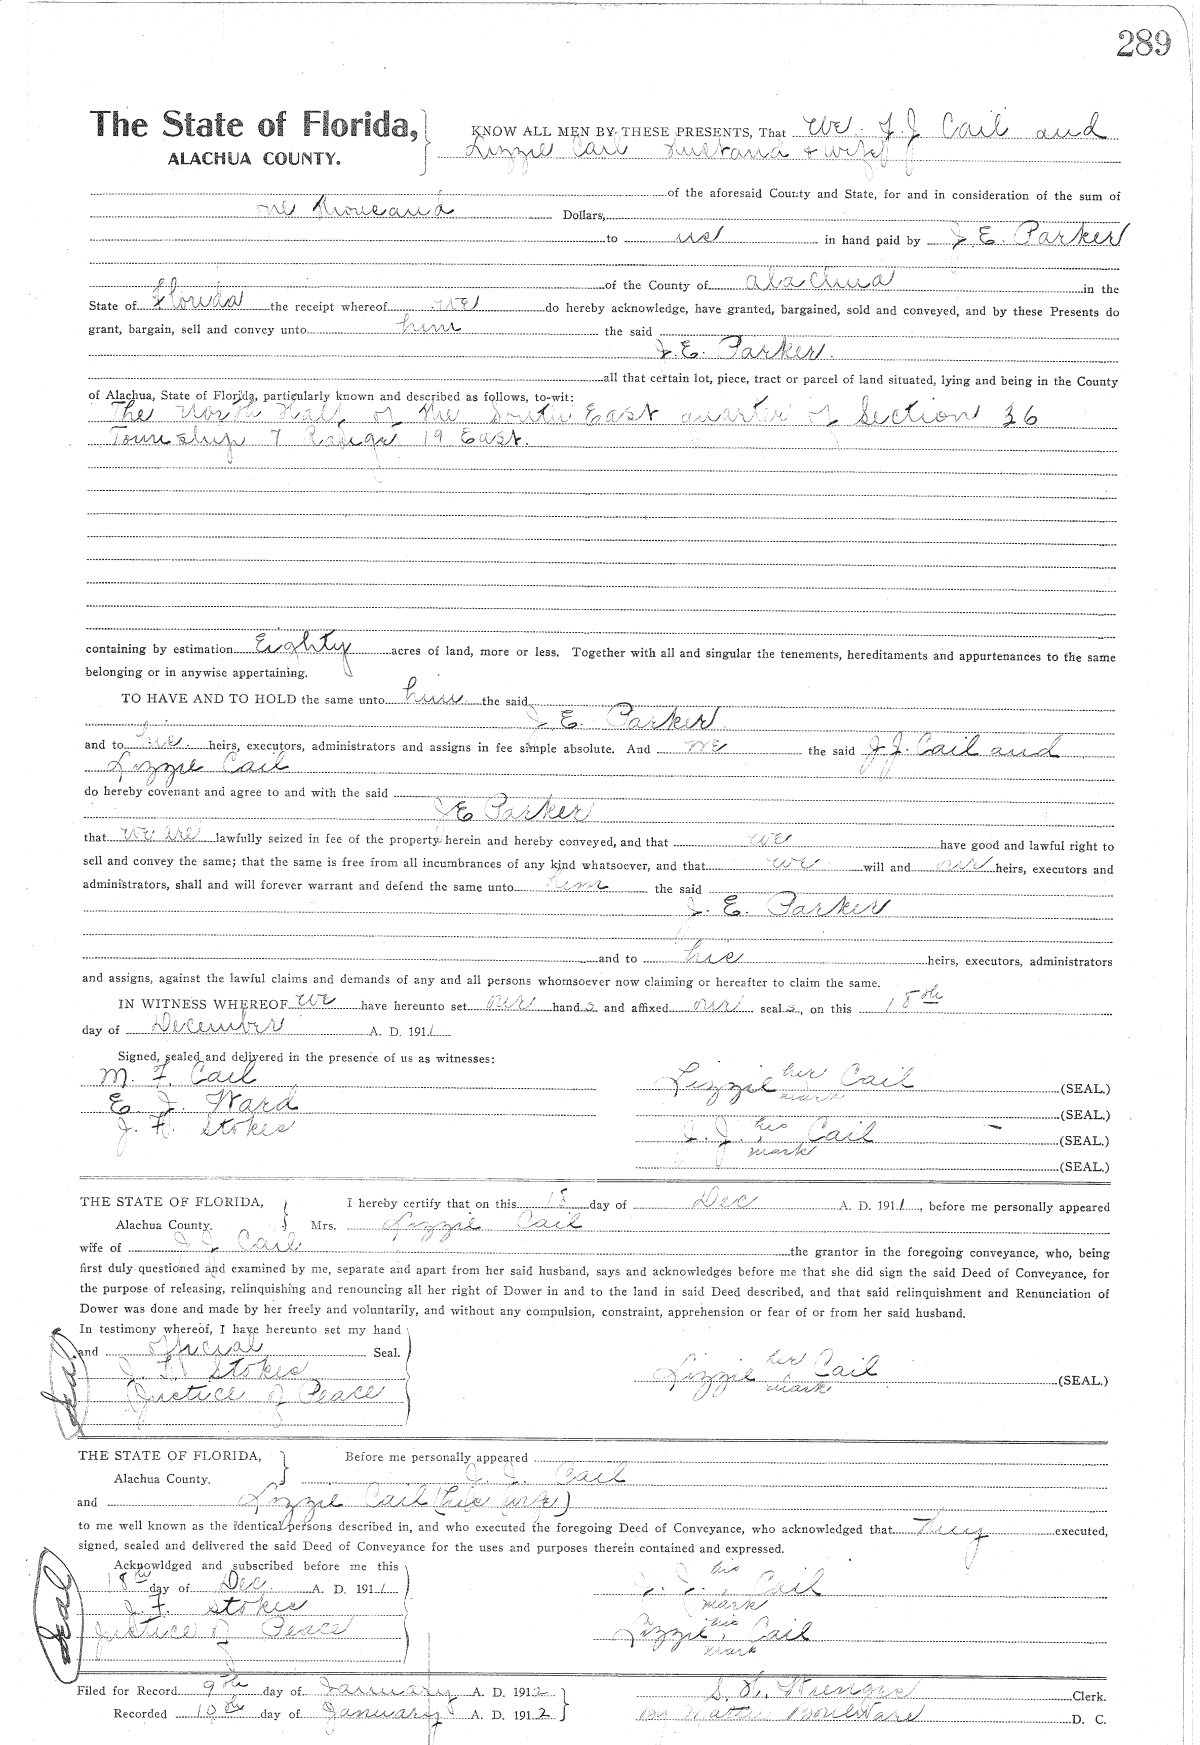 289
The State of Florida,
ALACHUA COUNTY.
KNOW ALL MEN BY THESE PRESENTS, That We J. J. Cail and
Lizzie Cail Husband & wife
of the aforesaid County and State, for and in consideration of the sum of
one thousand Dollars,
to us in hand paid by J. E. Parker
of the County of Alachua in the
State of Florida the receipt whereof we do hereby acknowledge, have granted, bargained, sold and conveyed, and by these Presents do
grant, bargain, sell and convey unto him the said
J. E. Parker.
all that certain lot, piece, tract or parcel of land situated, lying and being in the County
of Alachua, State of Florida, particularly known and described as follows, to-wit:
The North Half of the South East quarter of Section 36
Township 7 Range 19 East.
containing by estimation Eighty acres of land, more or less. Together with all and singular the tenements, hereditaments and appurtenances to the same
belonging or in anywise appertaining.
TO HAVE AND TO HOLD the same unto him the said
J. E. Parker
and to his heirs, executors, administrators and assigns in fee simple absolute. And we the said J. J. Cail and
Lizzie Cail
do hereby covenant and agree to and with the said
J E Parker
that we are lawfully seized in fee of the property herein and hereby conveyed, and that we have good and lawful right to
sell and convey the same; that the same is free from all incumbrances of any kind whatsoever, and that we will and our heirs, executors and
administrators, shall and will forever warrant and defend the same unto him the said
J. E. Parker
and to his heirs, executors, administrators
and assigns, against the lawful claims and demands of any and all persons whomsoever now claiming or hereafter to claim the same.
IN WITNESS WHEREOF we have hereunto set our hands and affixed our seals, on this 18th
day of December A. D. 1911
Signed, sealed and delivered in the presence of us as witnesses:
M. F. Cail
E. J. Ward
J. F. Stokes
Lizzie her mark Cail (SEAL.)
(SEAL.)
J. J. his mark Cail (SEAL.)
(SEAL.)
THE STATE OF FLORIDA,
Alachua County.
I hereby certify that on this 18 day of Dec A. D. 1911, before me personally appeared
Mrs. Lizzie Cail
wife of J J Cail the grantor in the foregoing conveyance, who, being
first duly questioned and examined by me, separate and apart from her said husband, says and acknowledges before me that she did sign the said Deed of Conveyance, for
the purpose of releasing, relinquishing and renouncing all her right of Dower in and to the land in said Deed described, and that said relinquishment and Renunciation of
Dower was done and made by her freely and voluntarily, and without any compulsion, constraint, apprehension or fear of or from her said husband.
In testimony whereof, I have hereunto set my hand
and official Seal.
J. F. Stokes
Justice of Peace
Seal
Lizzie her mark Cail (SEAL.)
THE STATE OF FLORIDA,
Alachua County.
Before me personally appeared
J. J. Cail
and Lizzie Cail (his wife)
to me well known as the identical persons described in, and who executed the foregoing Deed of Conveyance, who acknowledged that they executed,
signed, sealed and delivered the said Deed of Conveyance for the uses and purposes therein contained and expressed.
Acknowldged and subscribed before me this
18th day of Dec. A. D. 1911
J. F. Stokes
Justice of Peace
Seal
J. J. his mark Cail
Lizzie his mark Cail
Filed for Record 9th day of January A. D. 1912
Recorded 10th day of January A. D. 1912
S. H. Wienges Clerk.
By Boulware D. C.